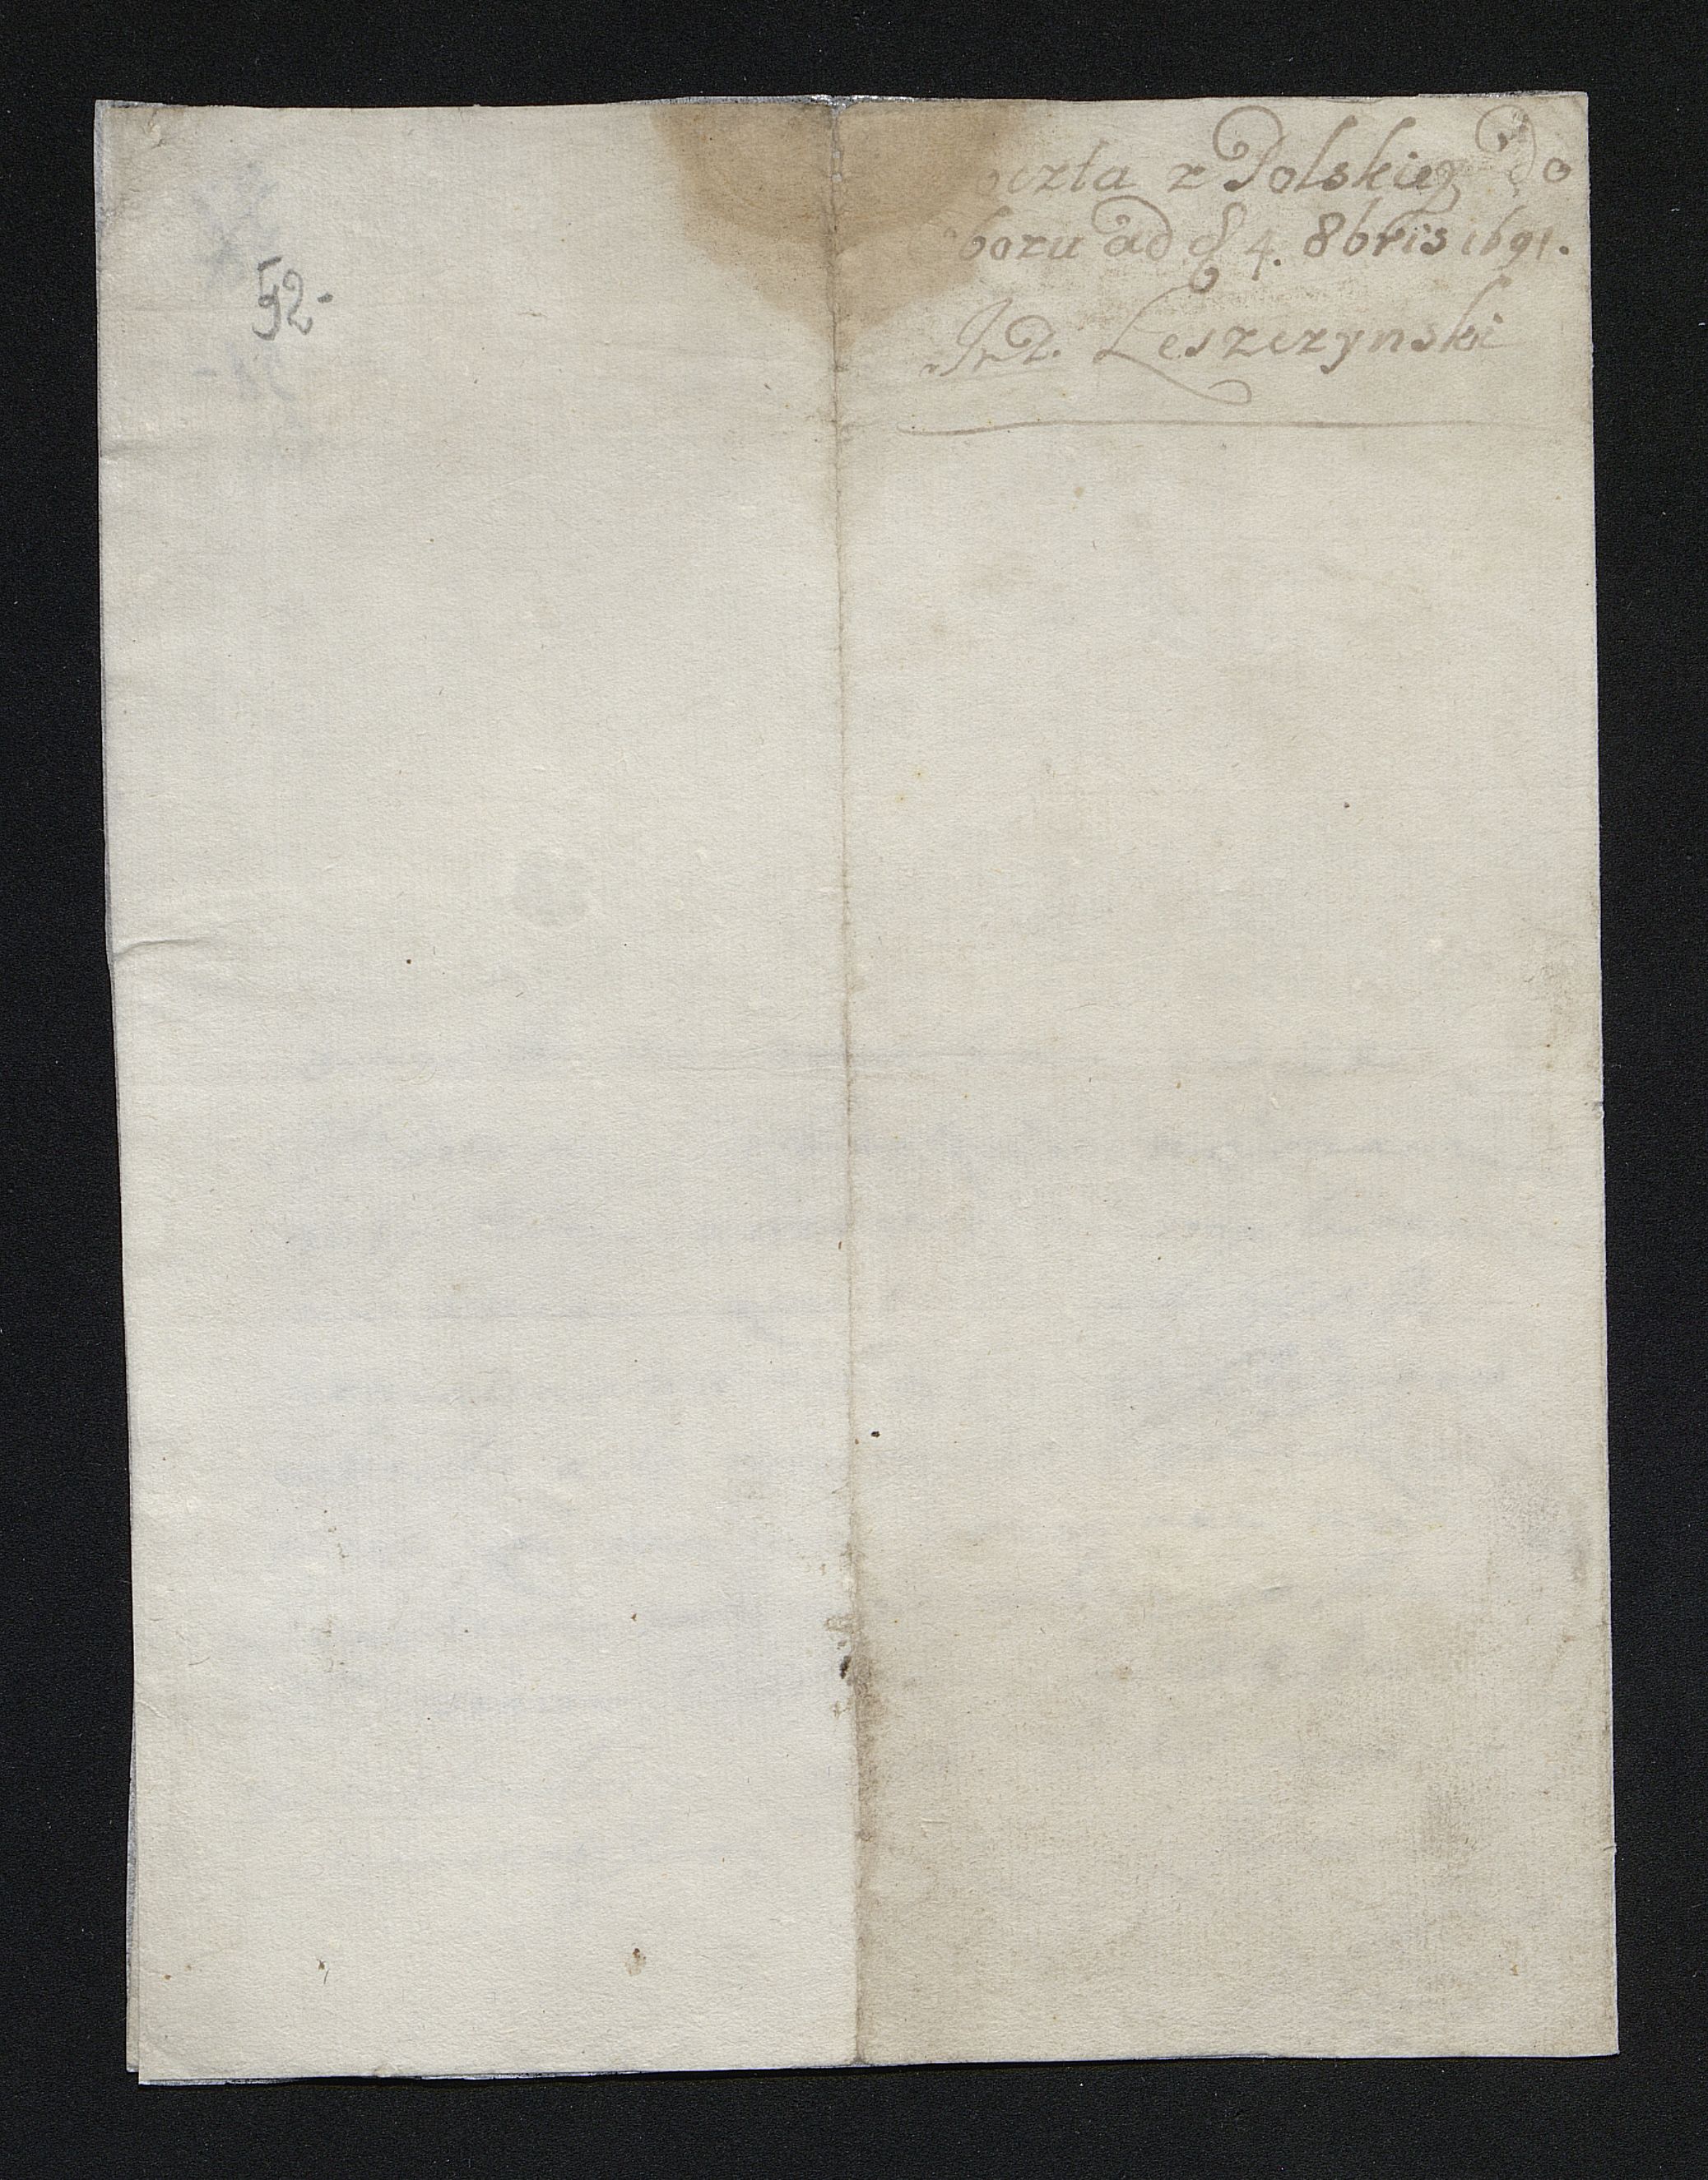 52.
oczta z Polskiey do
bozu ad d 4. 8bris 1691.
Leszczynski